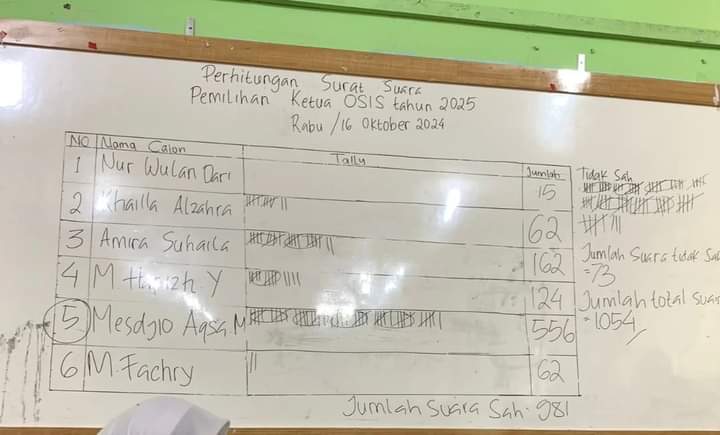 Perhitungan Surat Suara
Pemilihan Ketua OSIS tahun 2025
Rabu /16 Oktober 2024
NO Nama Calon Tally Jumlah
1 Nur Wulan Dari 15
2 Khailla Alzahra 62
3 Amira Suhaila 162
4 M Y 124
5 Mesdjio Aqsa M 556
6 M. Fachry 62
Jumlah Suara Sah : 981
Tidak Sah
Jumlah Suara tidak Sa
= 73
Jumlah total Suar
= 1054